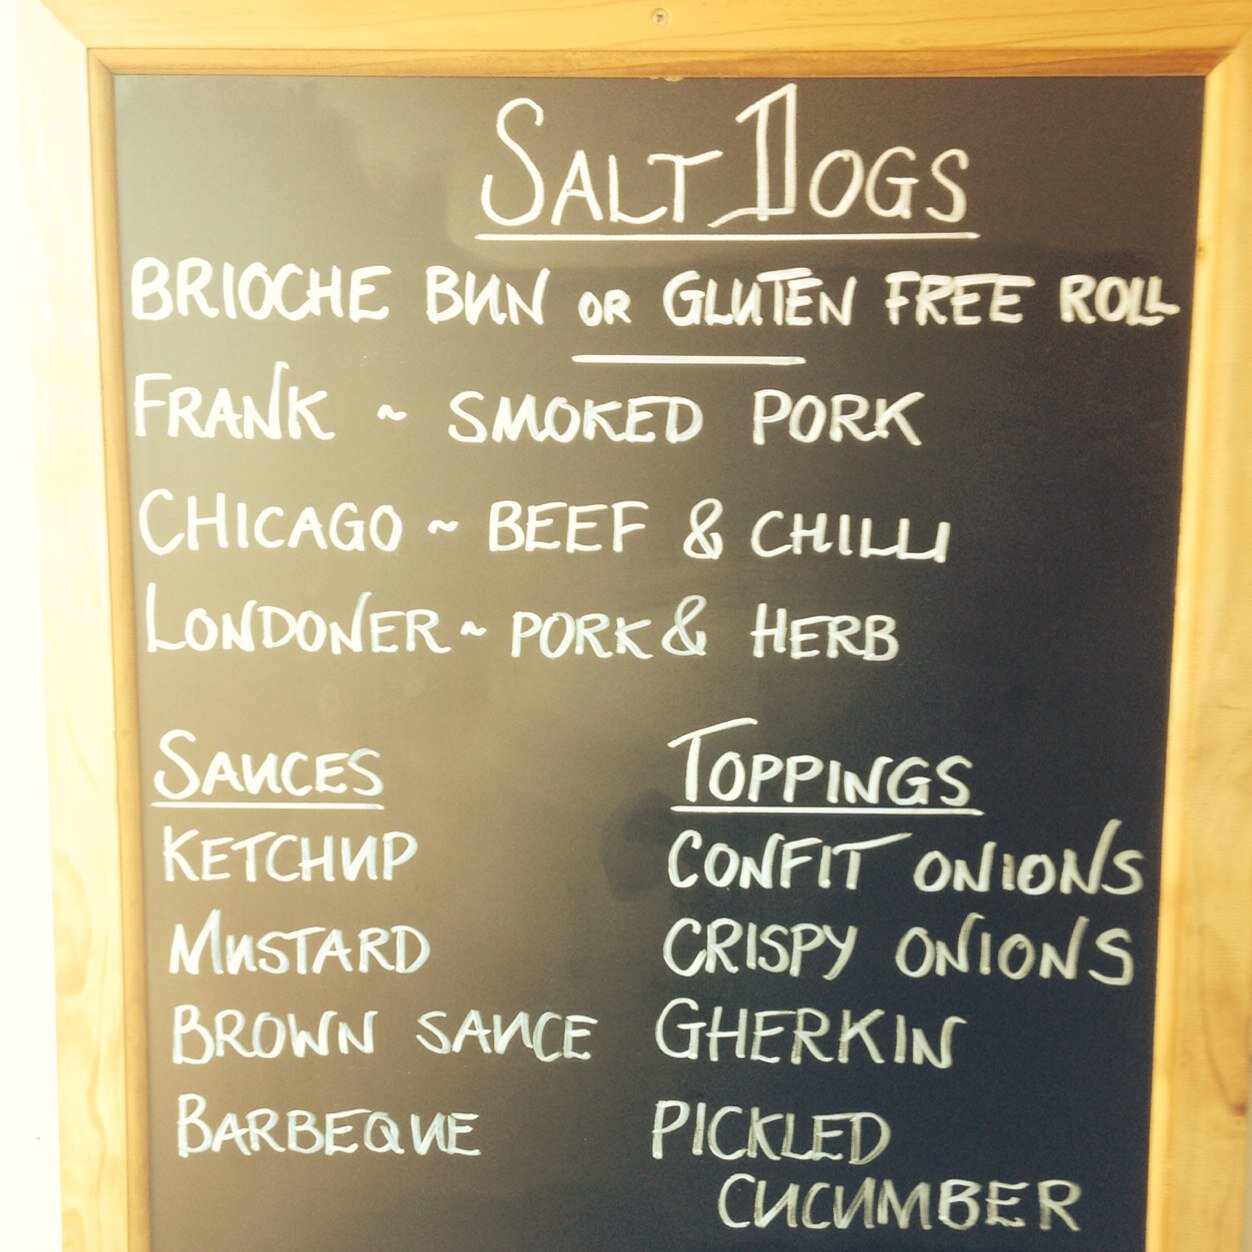 SALT DOGS
BRIOCHE BUN OR GLUTEN FREE ROLL
FRANK ~ SMOKED PORK
CHICAGO ~ BEEF & CHILLI
LONDONER ~ PORK & HERB
SAUCES
KETCHUP
MUSTARD
BROWN SAUCE
BARBEQUE
TOPPINGS
CONFIT ONIONS
CRISPY ONIONS
GHERKIN
PICKLED
CUCUMBER